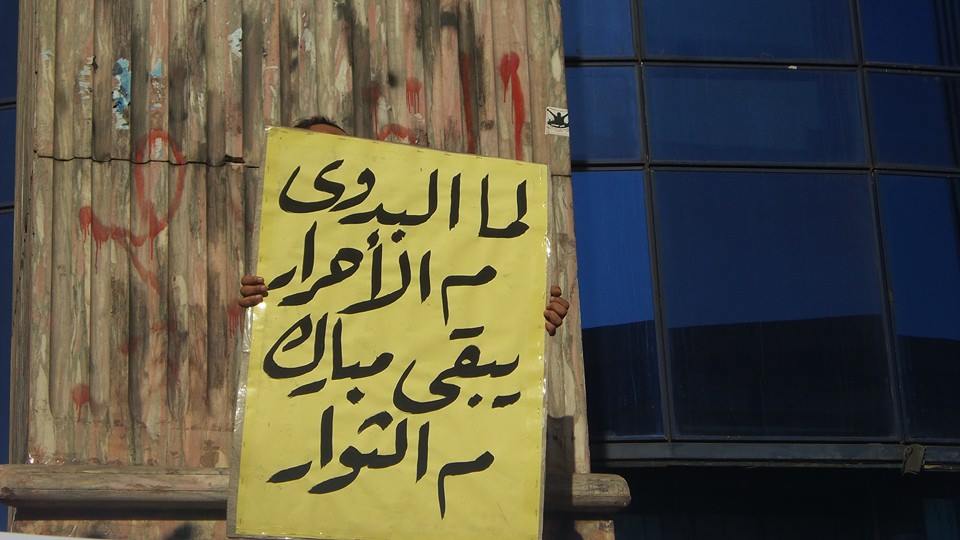 لما البدوى
م الأحرار
يبقى مبارك
م الثوار